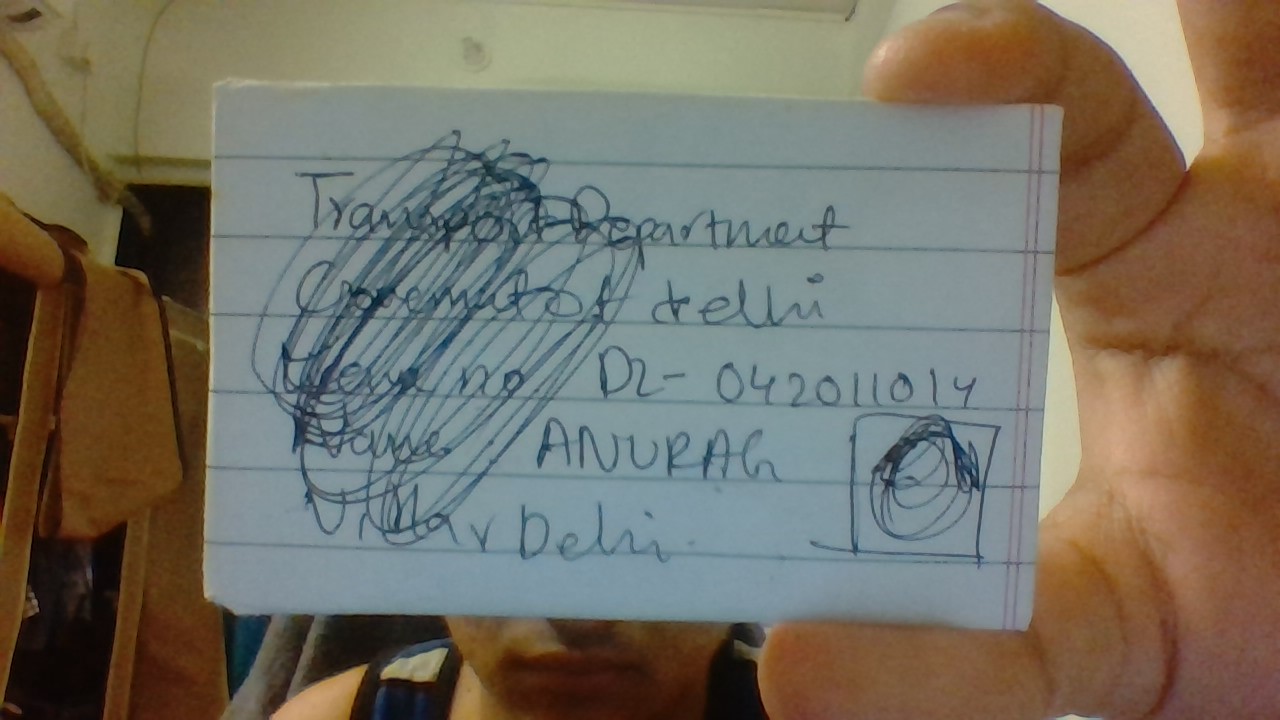 Transport Department
Government of delhi
no DL- 042011014
Name ANURAG
Villar Delhi.